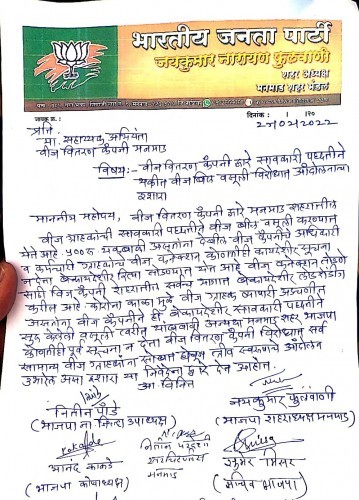 भारतीय जनता पार्टी
जयकुमार नारायण फुलवाणी
शहर अध्यक्ष
मनमाड शहर मंडल
जावक क्र. :
दिनांक : / /२०
27/02/2022
प्रति,
मा. सहाय्यक अभियंता
वीज वितरण कंपनी मनमाड
विषय:- वीज वितरण कंपनी द्वारे सावकारी पध्दतीने
थकीत वीज बिल वसूली विरोधात आंदोलनाचा
इशारा
माननीय महोदय, वीज वितरण कंपनी द्वारे मनमाड शहरातील
वीज ग्राहकांची सावकारी पध्दतीने वीज बील वसूली करण्यात
येत आहे ५००रु थकबाकी असलेल्या देखील वीज कंपनीचे अधिकारी
व कर्मचारी ग्राहकांचे वीज कनेक्शन कोणतीही कायदेशीर सूचना
न देता बेकायदेशीर रित्या तोडण्यात येत आहे वीज कनेक्शन तोडणे
साठी वीज कंपनी शहरातील सर्वच भागात बेकायदेशीर लोडशेडींग
करीत आहे कोरोना काळा मुळे वीज ग्राहक व्यापारी अडचणीत
असतांना वीज कंपनीने ही बेकायदेशीर सावकारी पध्दतीने
सुरु केलेली वसूली त्वरीत थांबवावी अन्यथा मनमाड शहर भाजपा
कोणतीही पूर्व सूचना न देता वीज वितरण कंपनी विरोधात सर्व
सामान्य वीज ग्राहकांना सोबत घेवून तीव्र स्वरुपाचे आंदोलन
उभारेल असा इशारा या निवेदना द्वारे देत आहोत.
आ विनित
नितीन पांडे
(भाजपा ना. जिल्हा उपाध्यक्ष)
जयकुमार फुलवाणी
(भाजपा शहराध्यक्ष मनमाड)
आनंद काकडे
(भाजपा कोषाध्यक्ष)
नितीन परदेशी
मनमाड
(सचिव भाजपा)